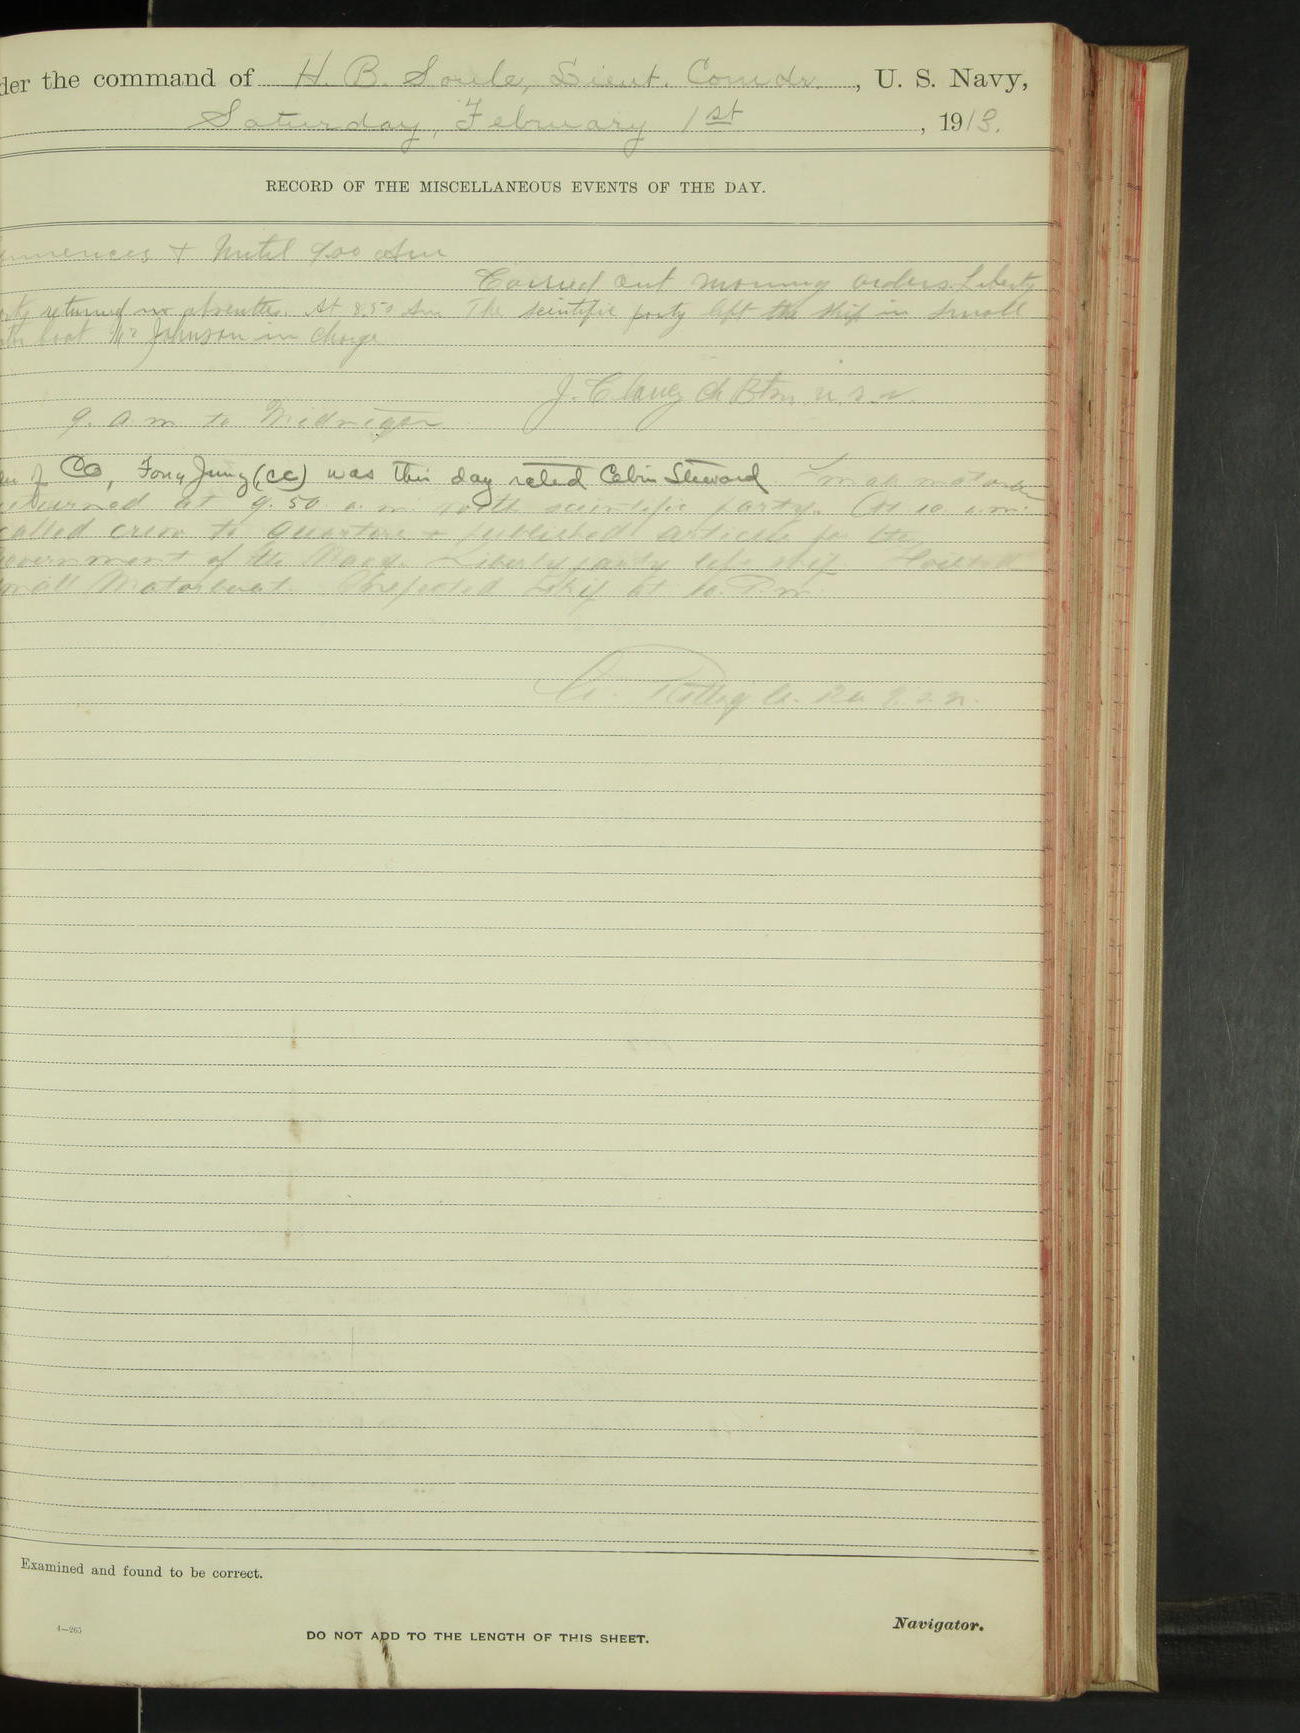 der the command of H. B. Soule, Lieut. Comdr., U. S. Navy,
Saturday, February 1st, 1913.
RECORD OF THE MISCELLANEOUS EVENTS OF THE DAY.
mences & until 9.00 Am
Carried out morning orders. Liberty
party returned no absentees. At 8.50 Am The scientific party left the ship in small
boat Mr Johnson in charge
J. C. Ch Btsn U.S.N.
9. a.m. to Midnight
of Co, Fong Jung (CC) was this day rated Cabin Steward. Small motorboat
returned at 9.50 a.m. with scientific party. At 10 a.m.
called crew to quarters & published articles for the
government of the Navy. Liberty party left ship. Hoisted
small Motorboat. Inspected Ship at 10. P.m.
U.S.N.
Examined and found to be correct.
4—265
DO NOT ADD TO THE LENGTH OF THIS SHEET.
Navigator.